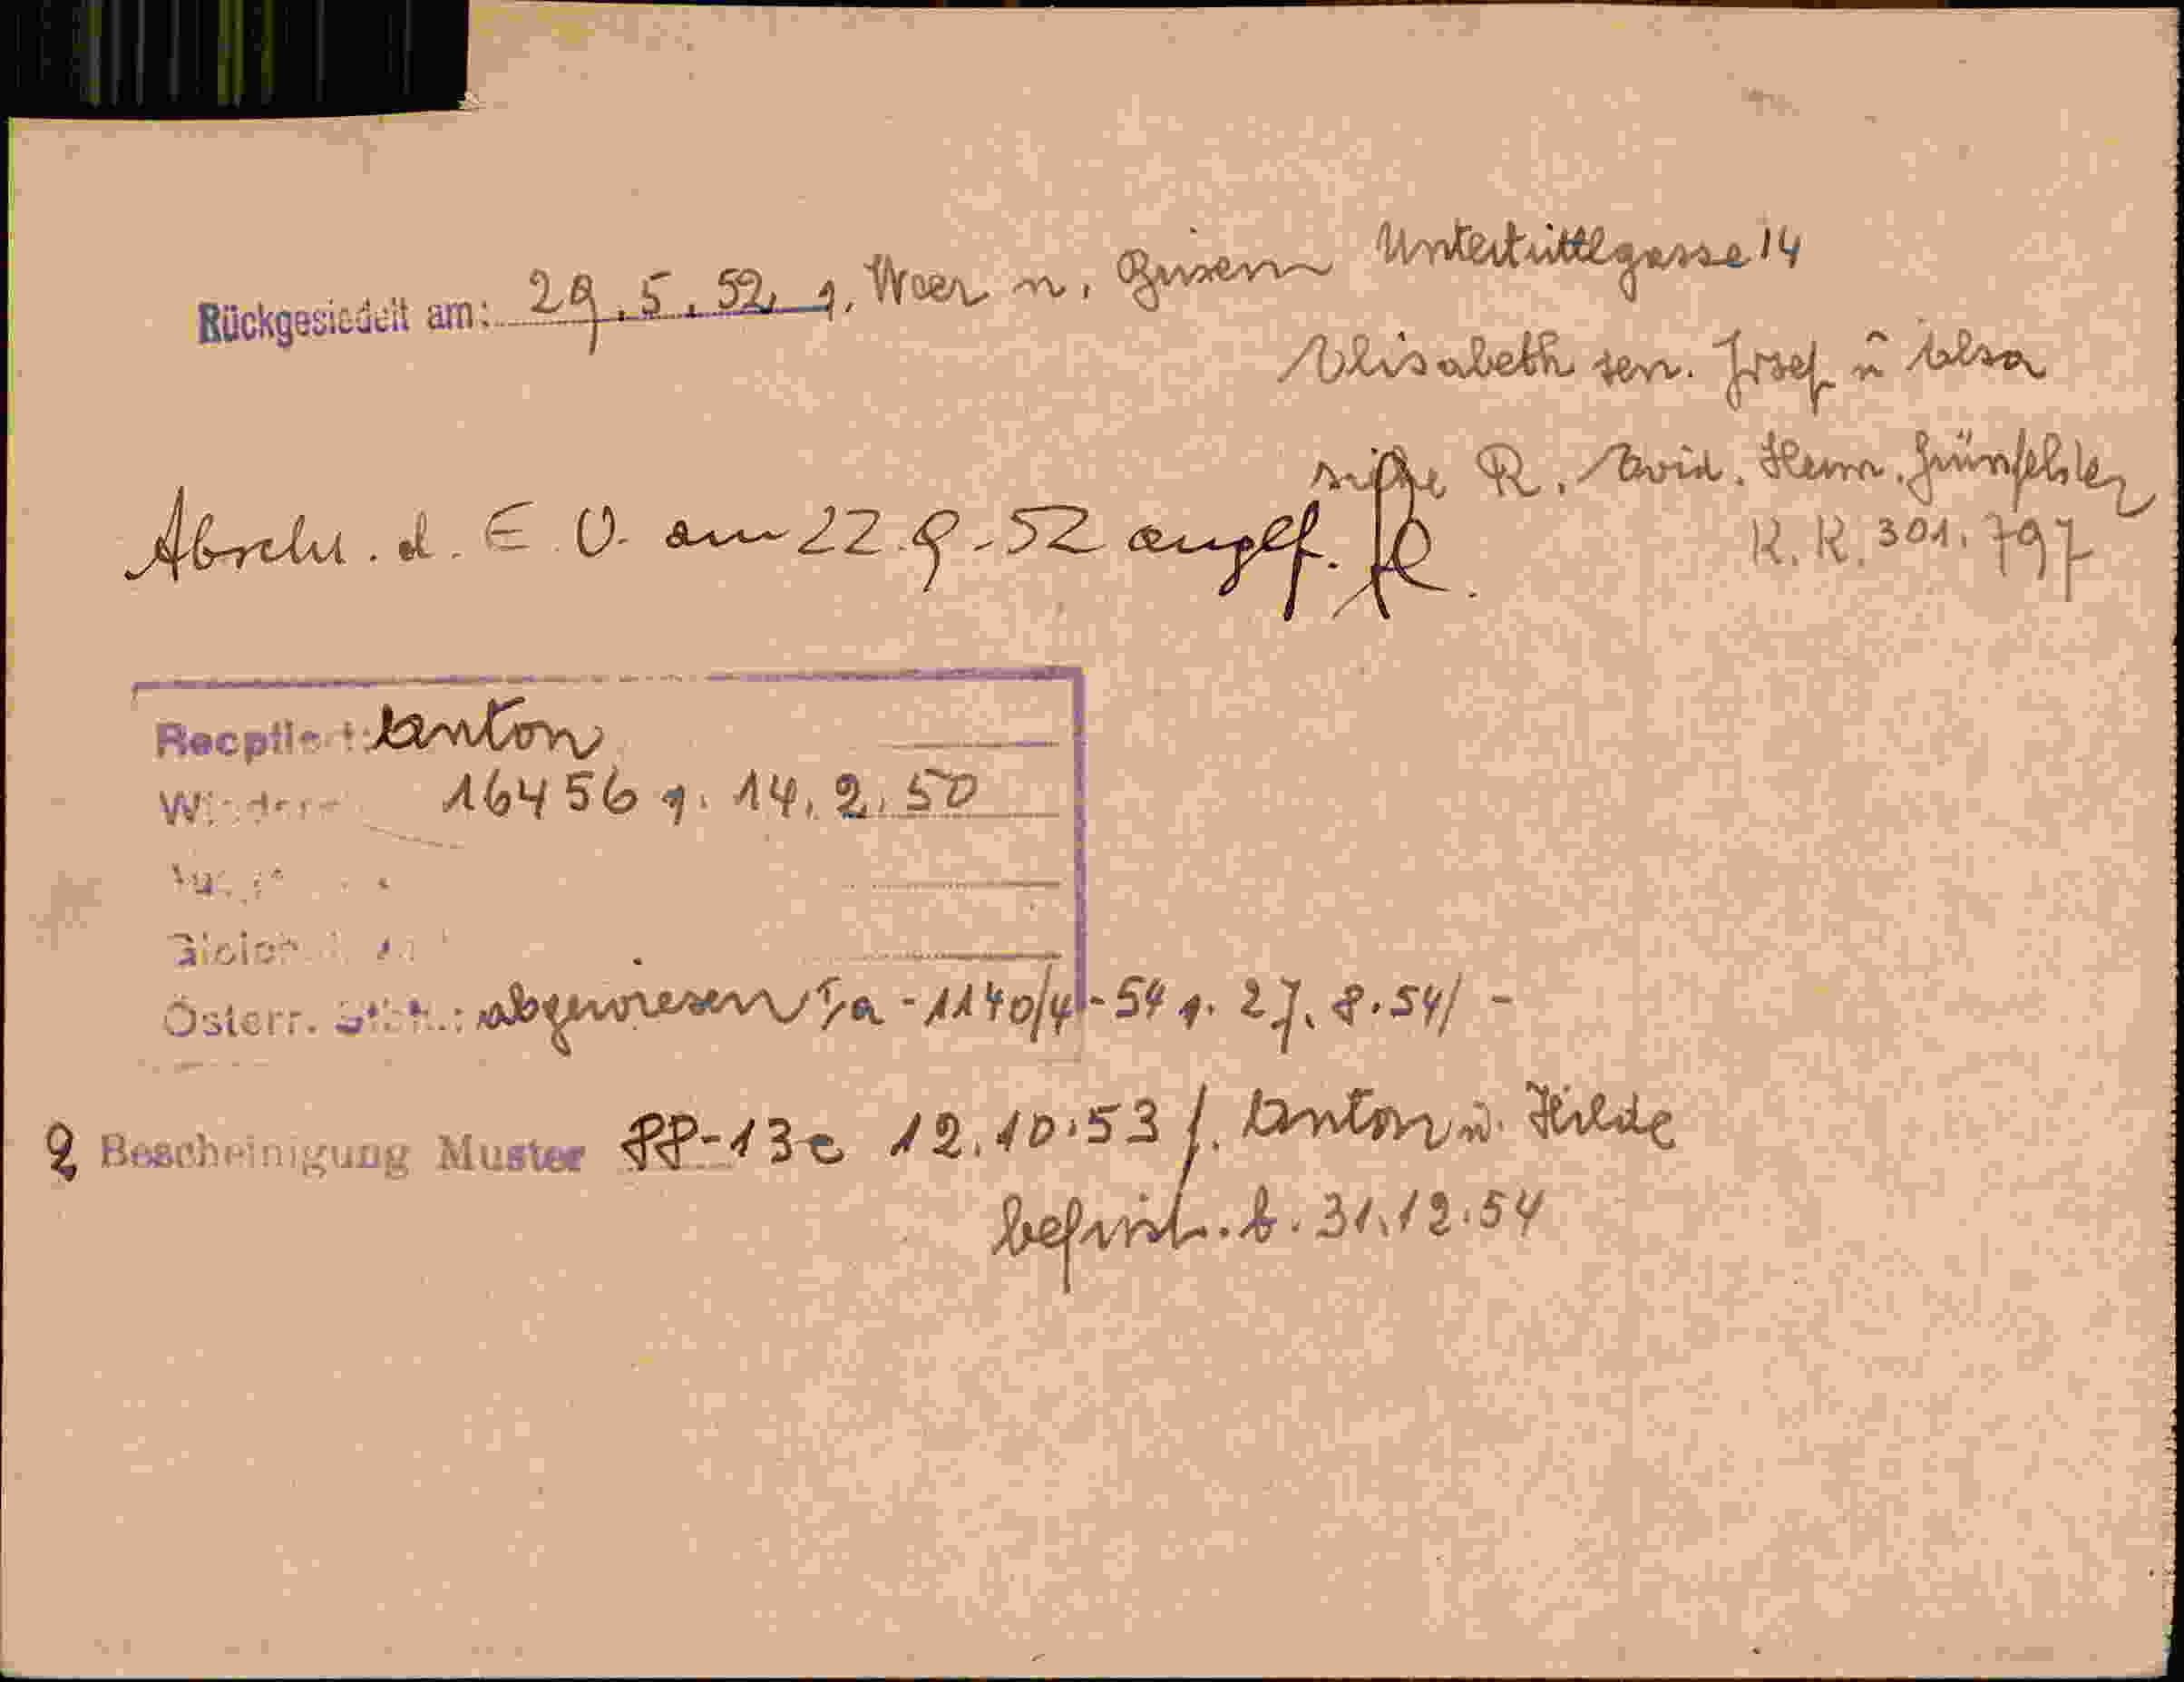 Rückgesiedelt am: 29.5.52, v. Weer n. Untertrittlgasse 14
Elisabeth sen. Josef u Elsa
siehe R. Evid. Herm. Grünfelder
K.K. 301.797
Abschr. d. E.V. am 22.9.52 angef.
Anton
16456 v. 14.2.50
Österr. abgewiesen Ia-1140/4-54 v. 27.8.54/-
2 Bescheinigung Muster PP-13e 12.10.53 f. Anton u. Hilde
befrist. b. 31.12.54